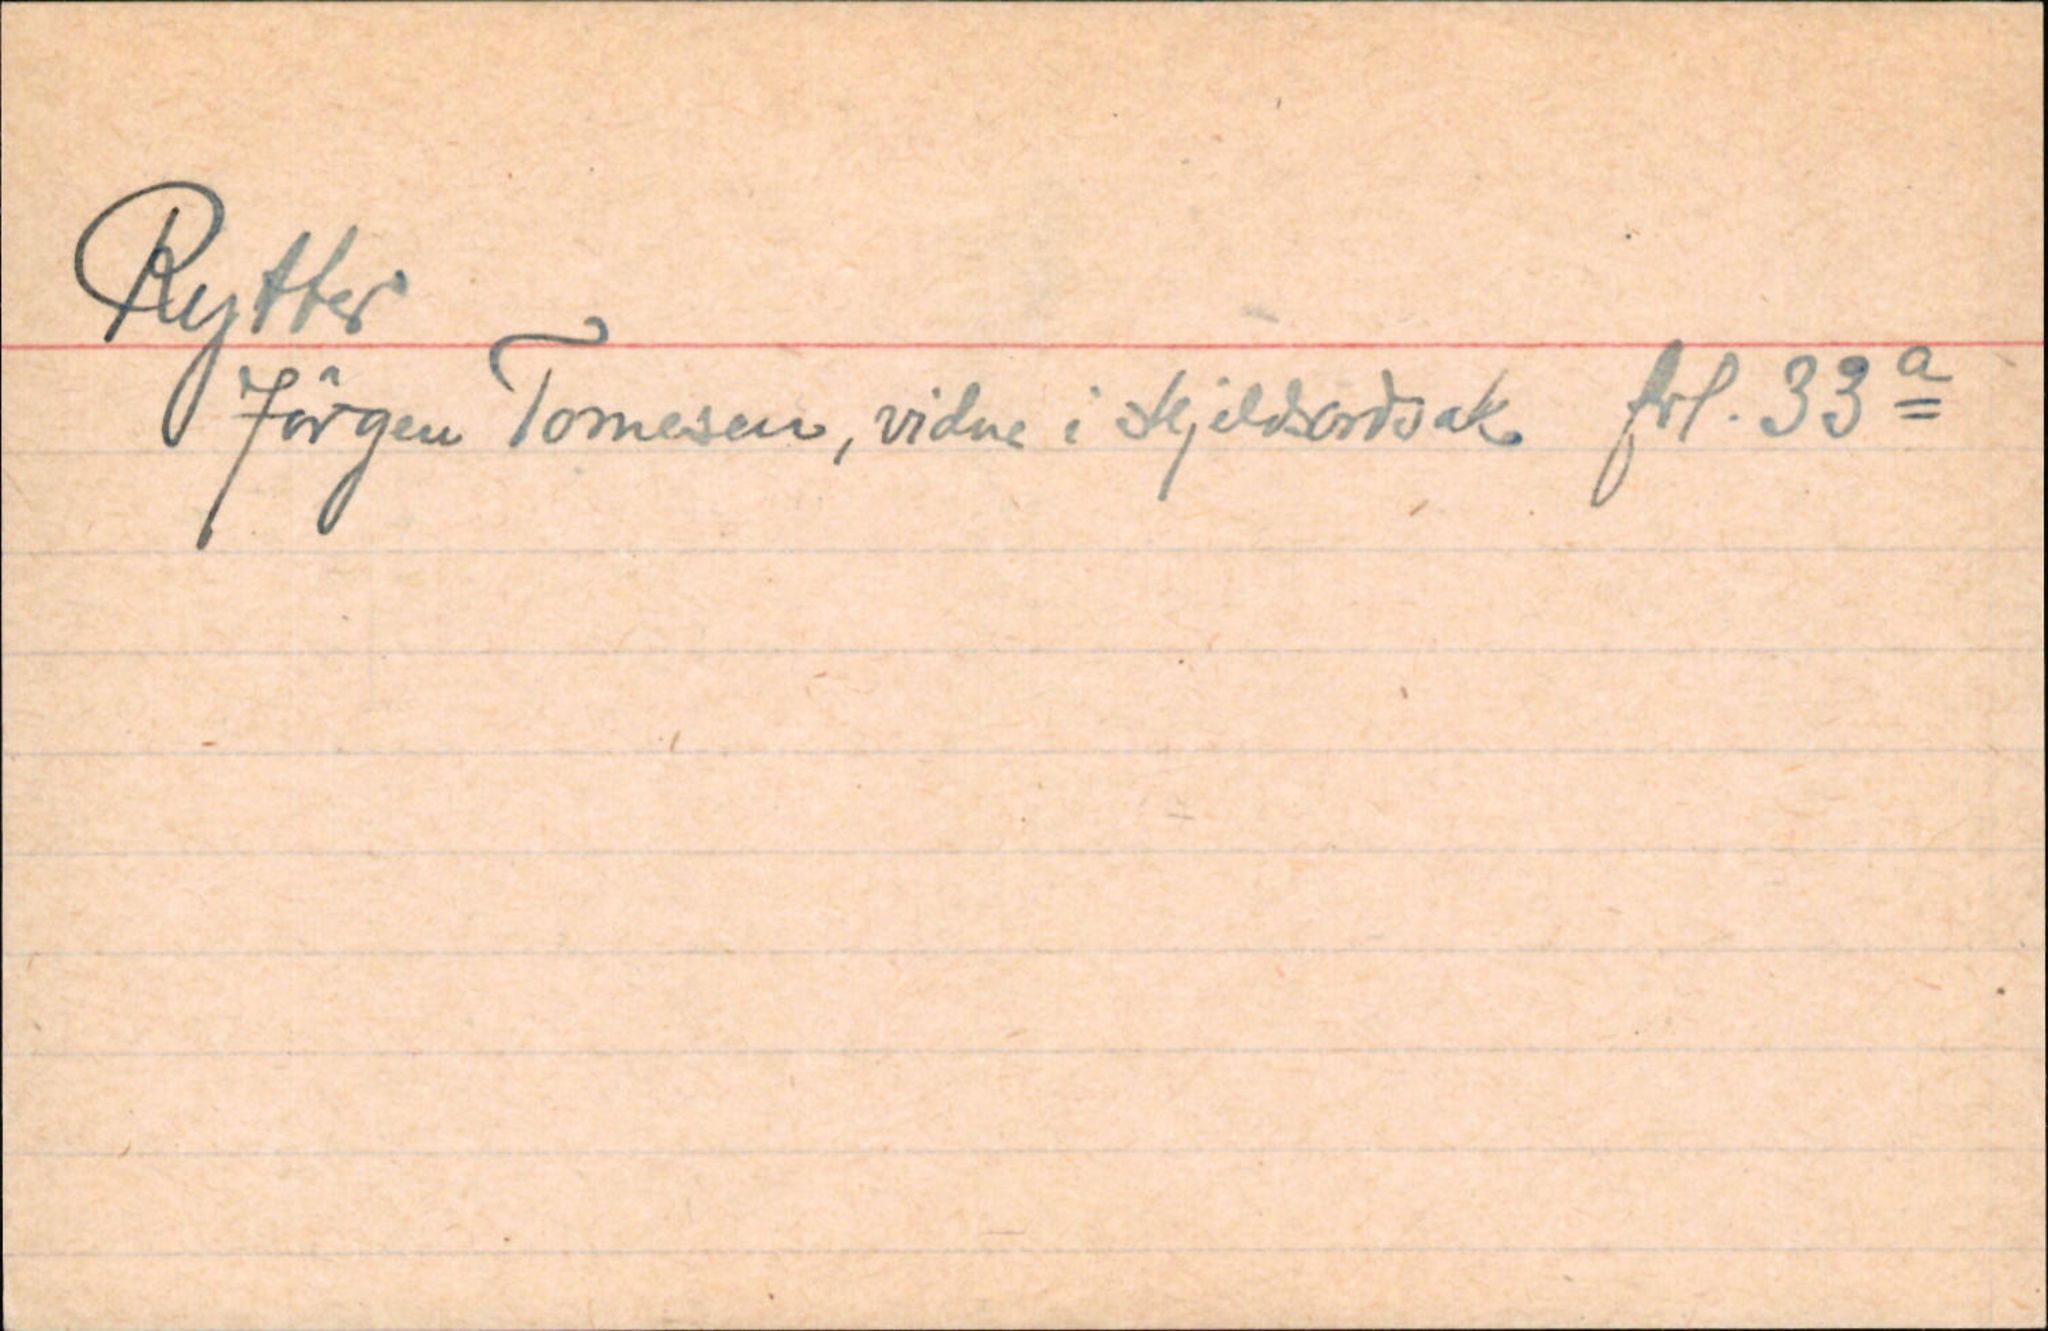 Rytter
Jörgen Tomesen, vidne i skjeldsordsak fol. 33a